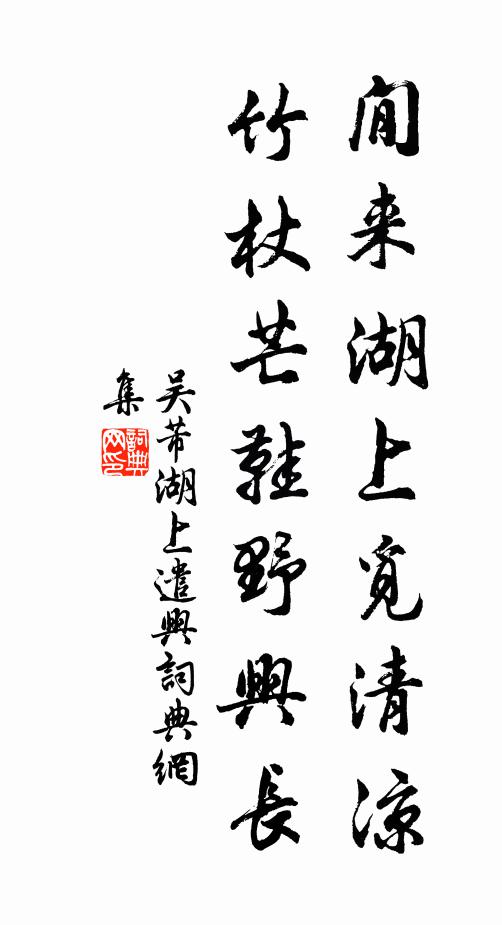 閒来湖上覓清涼
竹杖芒鞋野興長
吴芾湖上遣興詞典網
集
詞典网印